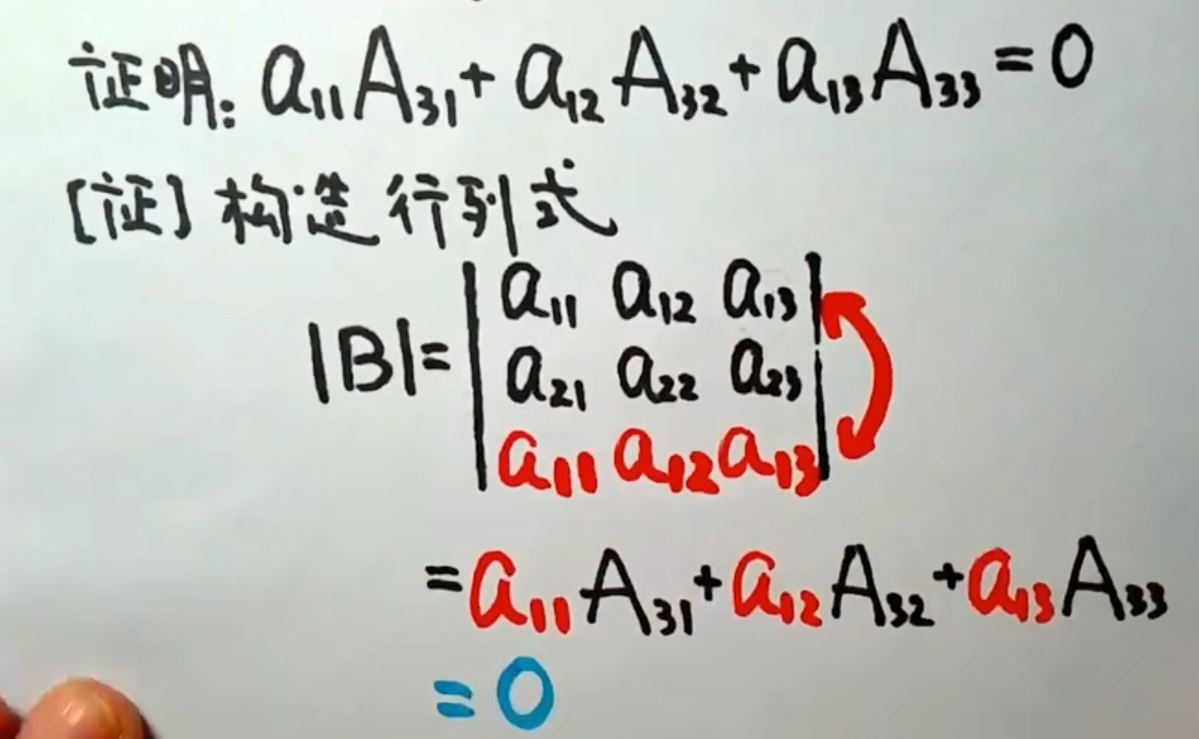 证明: a₁₁A₃₁+a₁₂A₃₂+a₁₃A₃₃=0
[证] 构造行列式
|B|=
a₁₁ a₁₂ a₁₃
a₂₁ a₂₂ a₂₃
a₁₁ a₁₂ a₁₃
=a₁₁A₃₁+a₁₂A₃₂+a₁₃A₃₃
=0